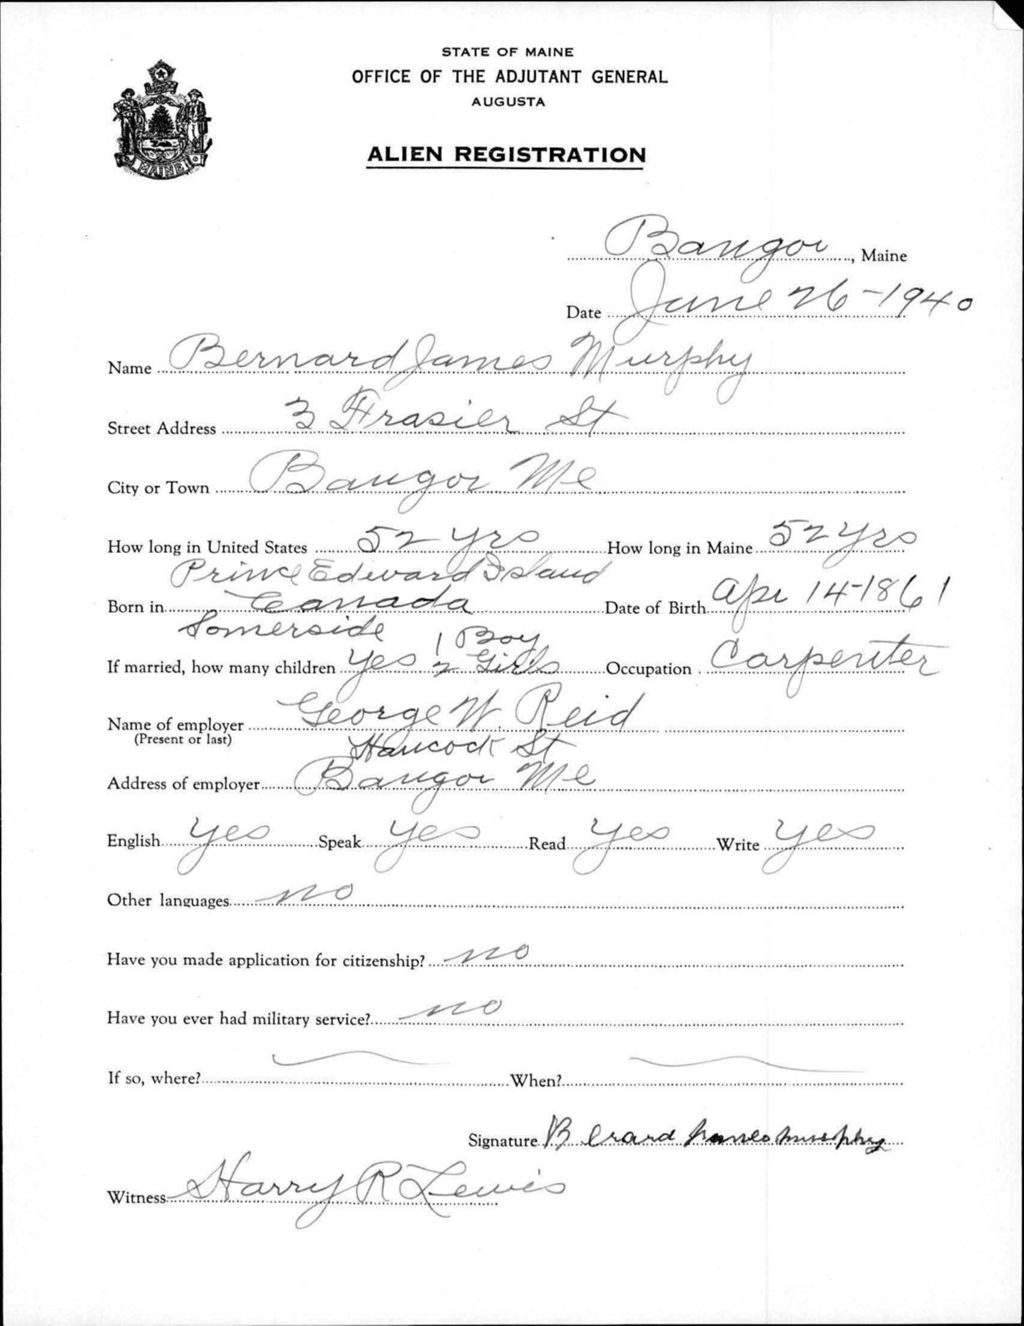 STATE OF MAINE
OFFICE OF THE ADJUTANT GENERAL
AUGUSTA
ALIEN REGISTRATION
MAINE
Bangor, Maine
Date June 26-1940
Name Bernard James Murphy
Street Address 3 Frasier St
City or Town Bangor Me
How long in United States 52 yrs How long in Maine 52 yrs
Prince Edward Island
Born in Canada Date of Birth Apr 14-1861
Somerside
1 Boy
If married, how many children Yes 2 Girls Occupation Carpenter
Name of employer George W. Reid
(Present or last)
Hancock St
Address of employer Bangor Me
English yes Speak yes Read yes Write yes
Other languages no
Have you made application for citizenship? no
Have you ever had military service? no
If so, where? When?
Signature B erard James Murphy
Witness Harry R Lewis